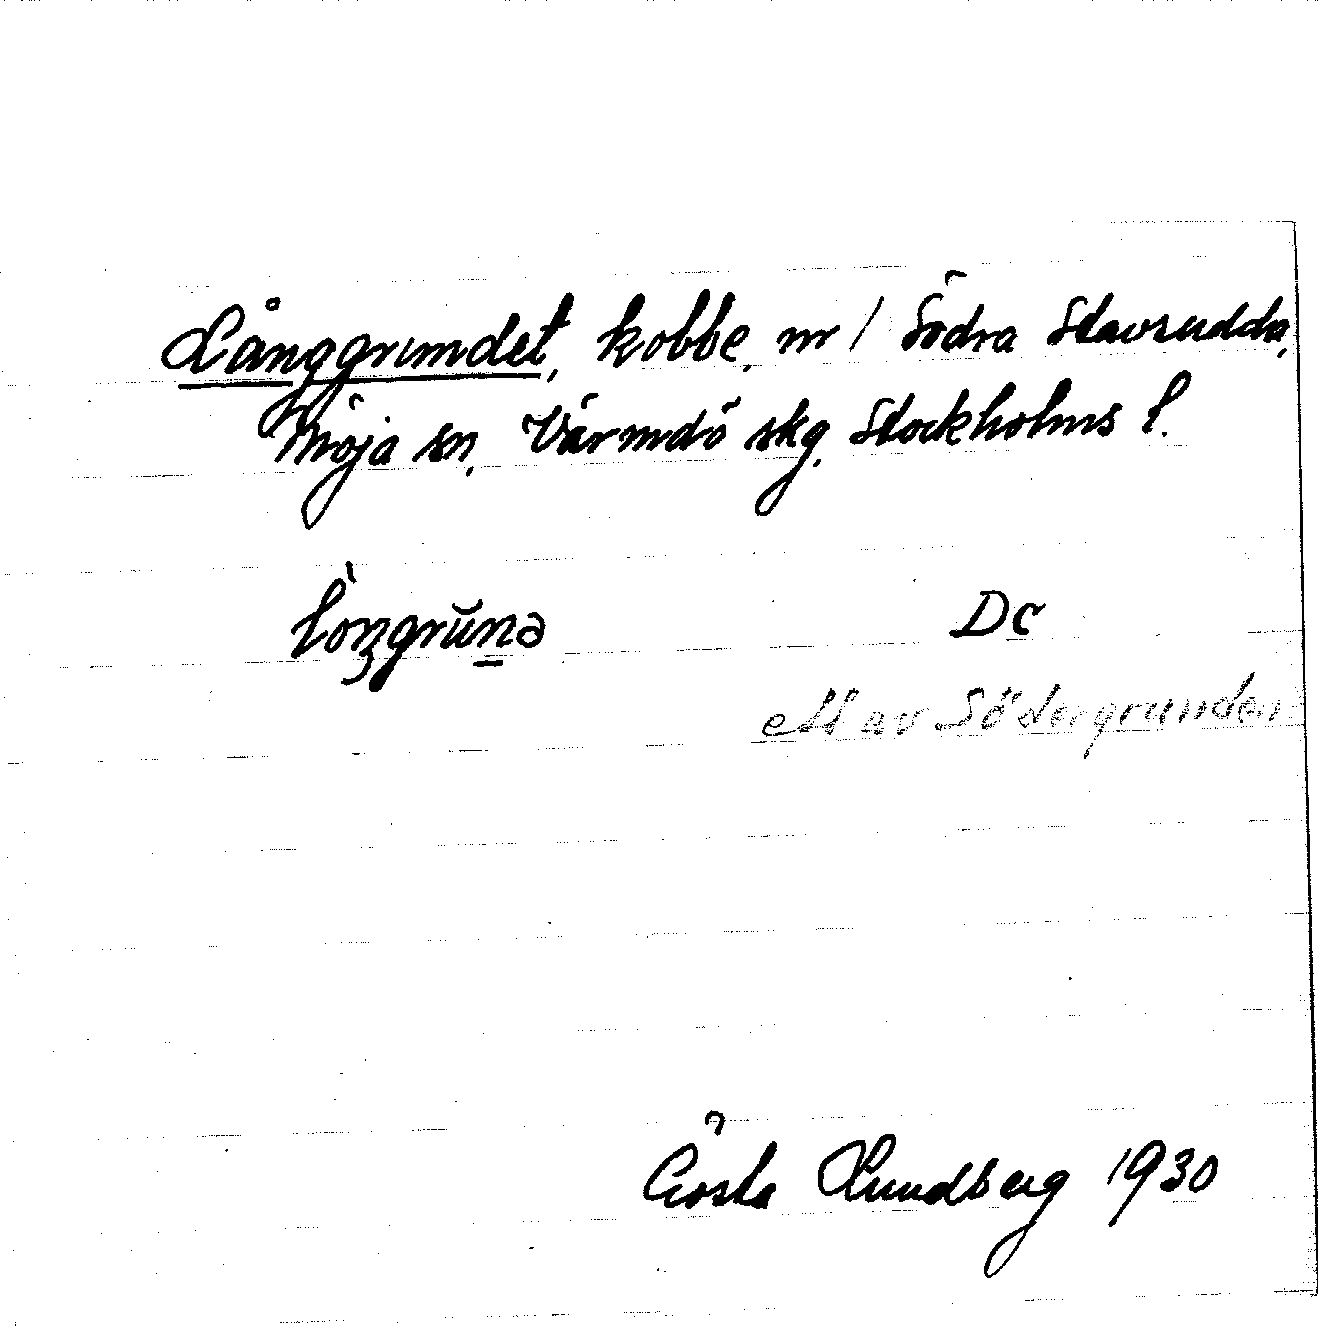 Långgrundet, kobbe, nr 1 Södra Stavsudda,
Möja sn, Värmdö skg, Stockholms l.
Lòŋgrŭna̱ Dc
ett av Södergrunden
Gösta Lundberg 1930